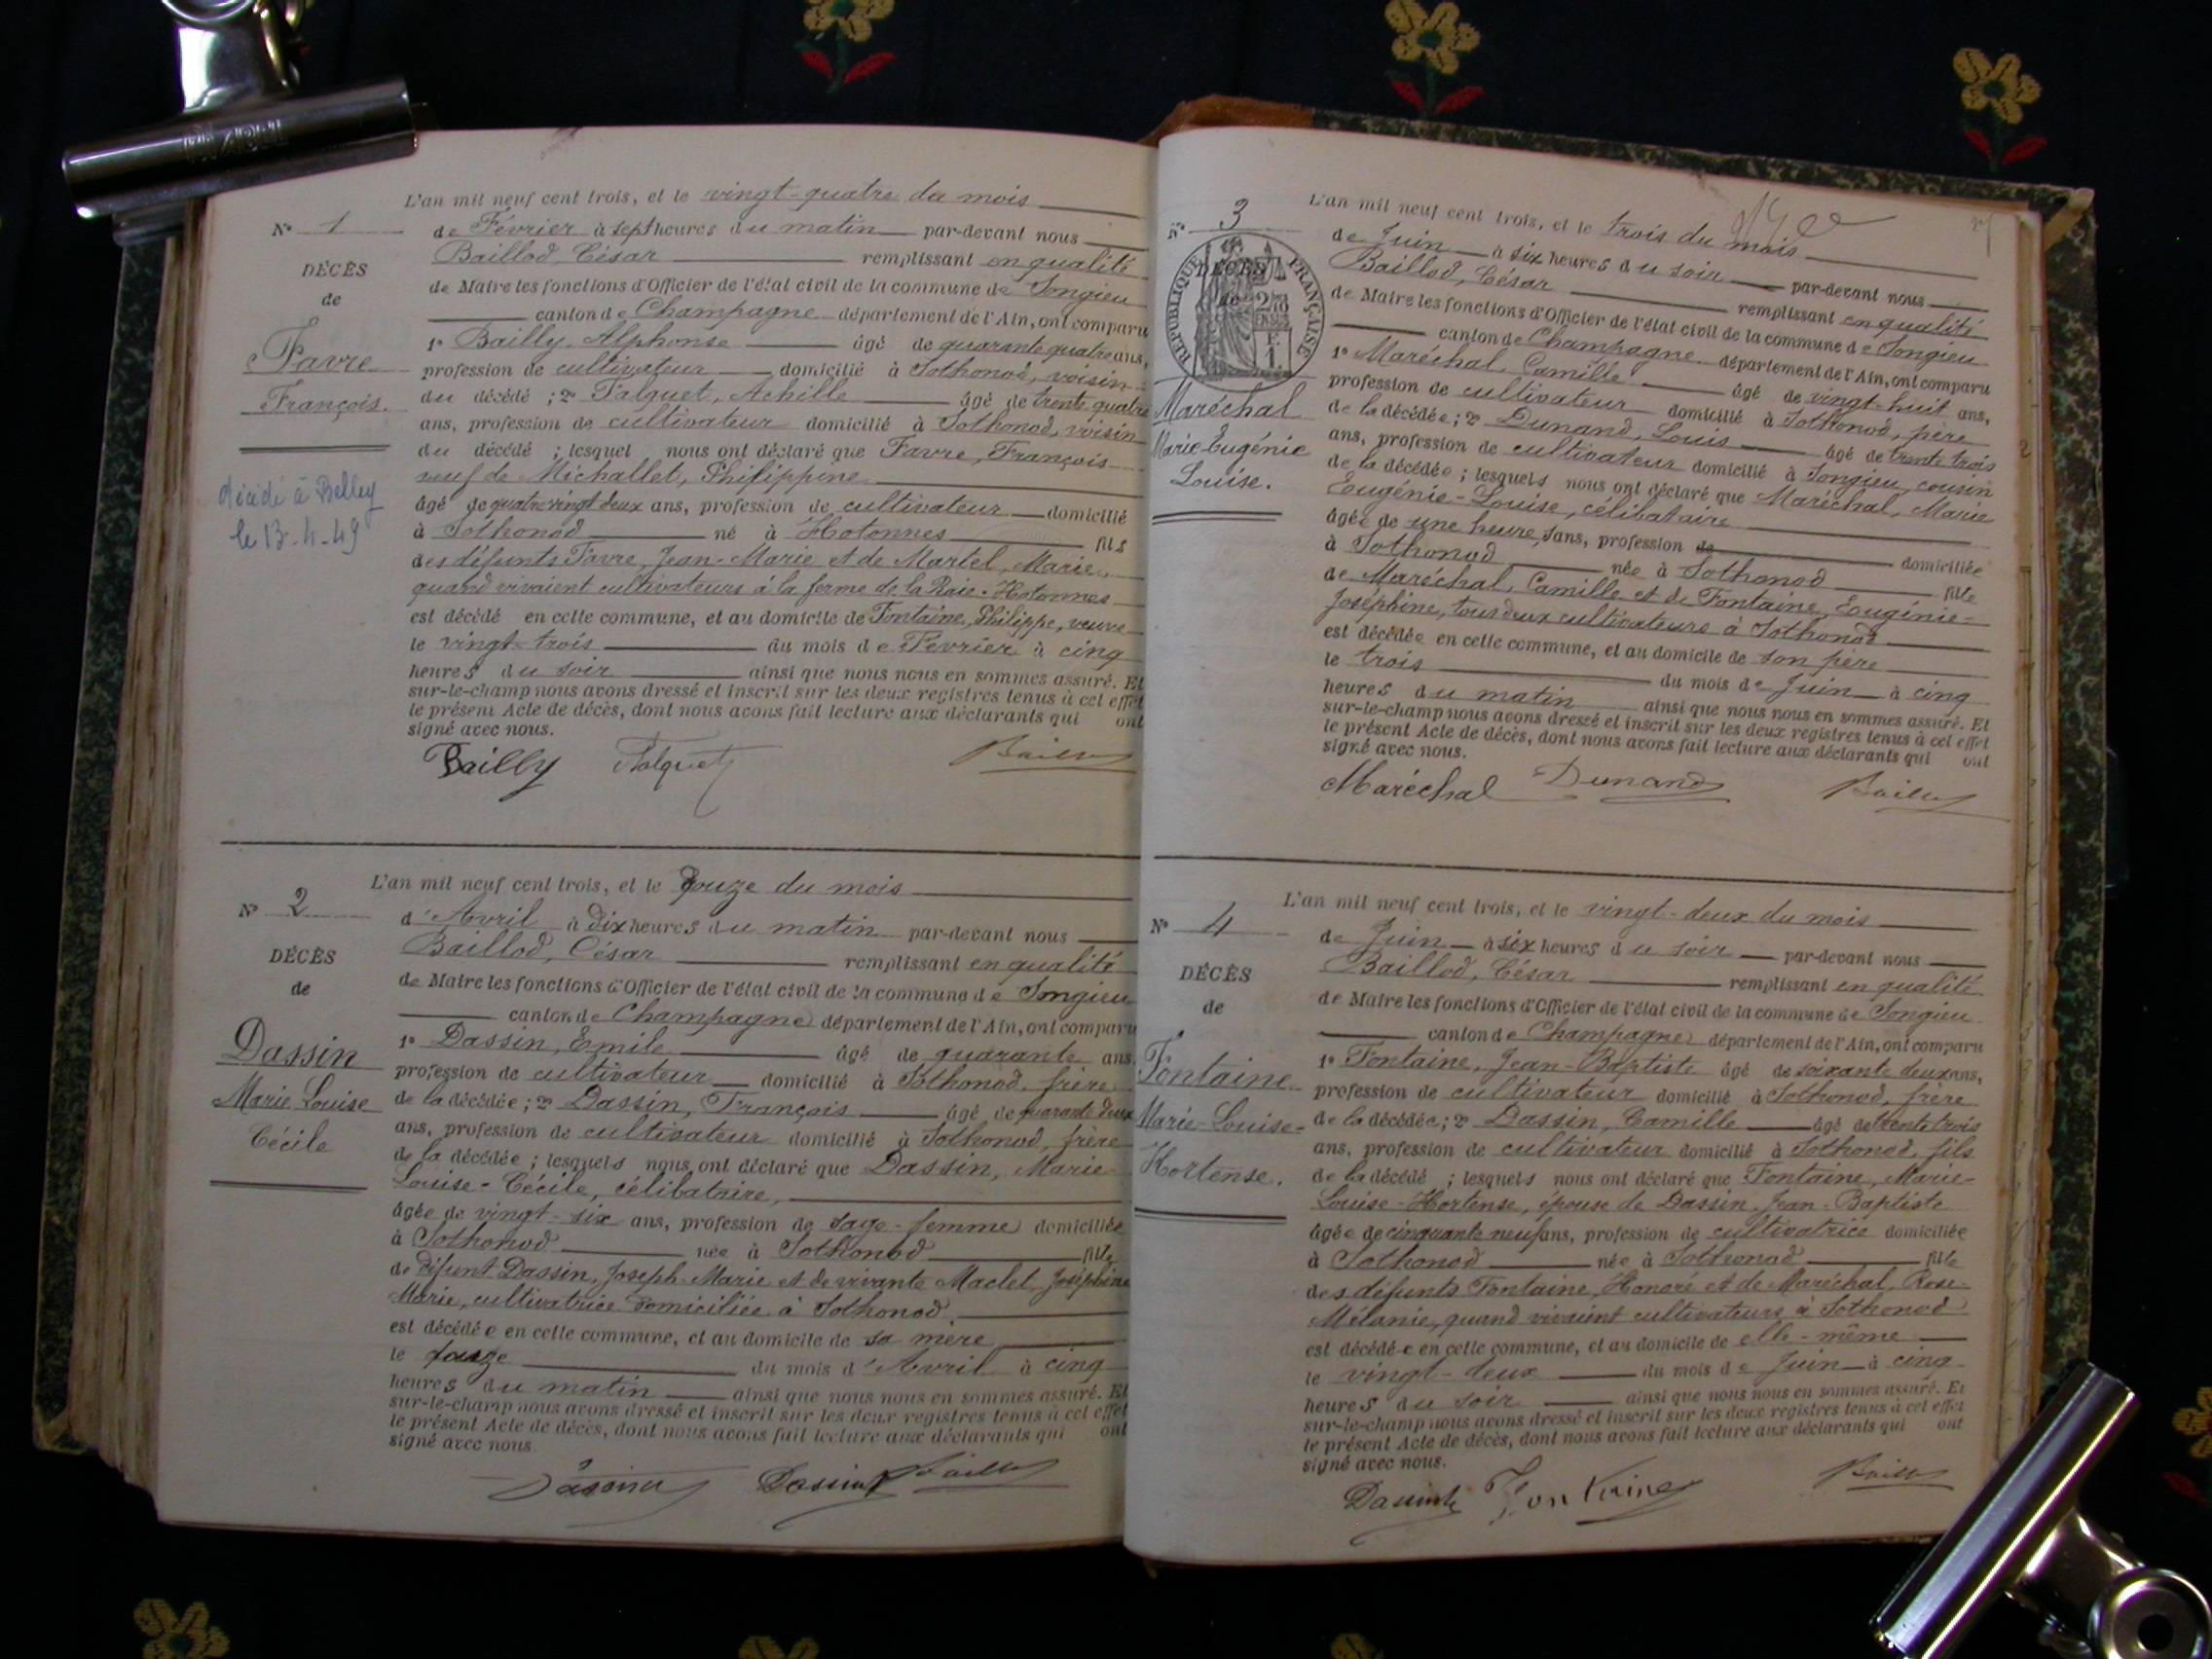 L'an mil neuf cent trois, et le vingt-quatre du mois
N° 1
de Février à sept heures du matin par-devant nous
Baillod, César remplissant en qualité
DÉCÈS
de Maire les fonctions d'Officier de l'état civil de la commune de Songieu
de
canton de Champagne département de l'Ain, ont comparu
1° Bailly, Alphonse âgé de quarante quatre ans,
Favre
profession de cultivateur domicilié à Sothonod, voisin
François.
du décédé ; 2° Falquet, Achille âgé de trente quatre
ans, profession de cultivateur domicilié à Sothonod, voisin
du décédé ; lesquel nous ont déclaré que Favre, François
veuf de Michallet, Philippine
décédé à Belley
le 13-4-49
âgé de quatre vingt deux ans, profession de cultivateur domicilié
à Sothonod né à Hotonnes fils
des défunts Favre, Jean-Marie et de Martel, Marie,
quand vivaient cultivateurs à la ferme de la Raie-Hotonnes
est décédé en cette commune, et au domicile de Fontaine, Philippe, veuve
le vingt-trois du mois de Février à cinq
heures du soir ainsi que nous nous en sommes assuré. Et
sur-le-champ nous avons dressé et inscrit sur les deux registres tenus à cet effet
le présent Acte de décès, dont nous avons fait lecture aux déclarants qui ont
signé avec nous.
Bailly Falquet Baillod
L'an mil neuf cent trois, et le douze du mois
N° 2
d'Avril à dix heures du matin par-devant nous
Baillod, César remplissant en qualité
DÉCÈS
de Maire les fonctions d'Officier de l'état civil de la commune de Songieu
de
canton de Champagne département de l'Ain, ont comparu
Dassin
1° Dassin, Emile âgé de quarante ans,
profession de cultivateur domicilié à Sothonod, frère
Marie Louise
de la décédée ; 2° Dassin, François âgé de quarante deux
Cécile
ans, profession de cultivateur domicilié à Sothonod, frère
de la décédée ; lesquels nous ont déclaré que Dassin, Marie-
Louise-Cécile, célibataire,
âgée de vingt-six ans, profession de sage-femme domiciliée
à Sothonod née à Sothonod fille
de défunt Dassin, Joseph-Marie et de vivante Maclet, Joséphine
Marie, cultivatrice domiciliée à Sothonod,
est décédée en cette commune, et au domicile de sa mère
le douze du mois d'Avril à cinq
heures du matin ainsi que nous nous en sommes assuré. Et
sur-le-champ nous avons dressé et inscrit sur les deux registres tenus à cet effet
le présent Acte de décès, dont nous avons fait lecture aux déclarants qui ont
signé avec nous
Dassin Dassin Baillod
L'an mil neuf cent trois, et le trois du mois
N° 3
de Juin à six heures du soir par-devant nous
RÉPUBLIQUE FRANÇAISE
DÉCÈS
de
Baillod, César remplissant en qualité
de Maire les fonctions d'Officier de l'état civil de la commune de Songieu
canton de Champagne département de l'Ain, ont comparu
1° Maréchal, Camille âgé de vingt-huit ans,
Maréchal
profession de cultivateur domicilié à Sothonod, père
Marie-Eugénie
de la décédée ; 2° Dunand, Louis âgé de trente trois
Louise.
ans, profession de cultivateur domicilié à Songieu, cousin
de la décédée ; lesquels nous ont déclaré que Maréchal, Marie
Eugénie-Louise, célibataire
âgée de une heure, sans, profession de domiciliée
à Sothonod née à Sothonod fille
de Maréchal, Camille et de Fontaine, Eugénie-
Joséphine, tous deux cultivateurs à Sothonod
est décédée en cette commune, et au domicile de son père
le trois du mois de Juin à cinq
heures du matin ainsi que nous nous en sommes assuré. Et
sur-le-champ nous avons dressé et inscrit sur les deux registres tenus à cet effet
le présent Acte de décès, dont nous avons fait lecture aux déclarants qui ont
signé avec nous.
Maréchal Dunand Baillod
L'an mil neuf cent trois, et le vingt-deux du mois
N° 4
de Juin à six heures du soir par-devant nous
Baillod, César remplissant en qualité
DÉCÈS
de Maire les fonctions d'Officier de l'état civil de la commune de Songieu
de
canton de Champagne département de l'Ain, ont comparu
Fontaine
1° Fontaine, Jean-Baptiste âgé de soixante deux ans,
profession de cultivateur domicilié à Sothonod, frère
Marie-Louise-
de la décédée ; 2° Dassin, Camille âgé de trente trois
Hortense.
ans, profession de cultivateur domicilié à Sothonod, fils
de la décédé ; lesquels nous ont déclaré que Fontaine, Marie-
Louise-Hortense, épouse de Dassin, Jean-Baptiste
âgée de cinquante neuf ans, profession de cultivatrice domiciliée
à Sothonod née à Sothonod fille
des défunts Fontaine, Honoré et de Maréchal, Rose-
Mélanie, quand vivaient cultivateurs à Sothonod
est décédée en cette commune, et au domicile de elle-même
le vingt-deux du mois de Juin à cinq
heures du soir ainsi que nous nous en sommes assuré. Et
sur-le-champ nous avons dressé et inscrit sur les deux registres tenus à cet effet
le présent Acte de décès, dont nous avons fait lecture aux déclarants qui ont
signé avec nous.
Dassin Fontaine Baillod